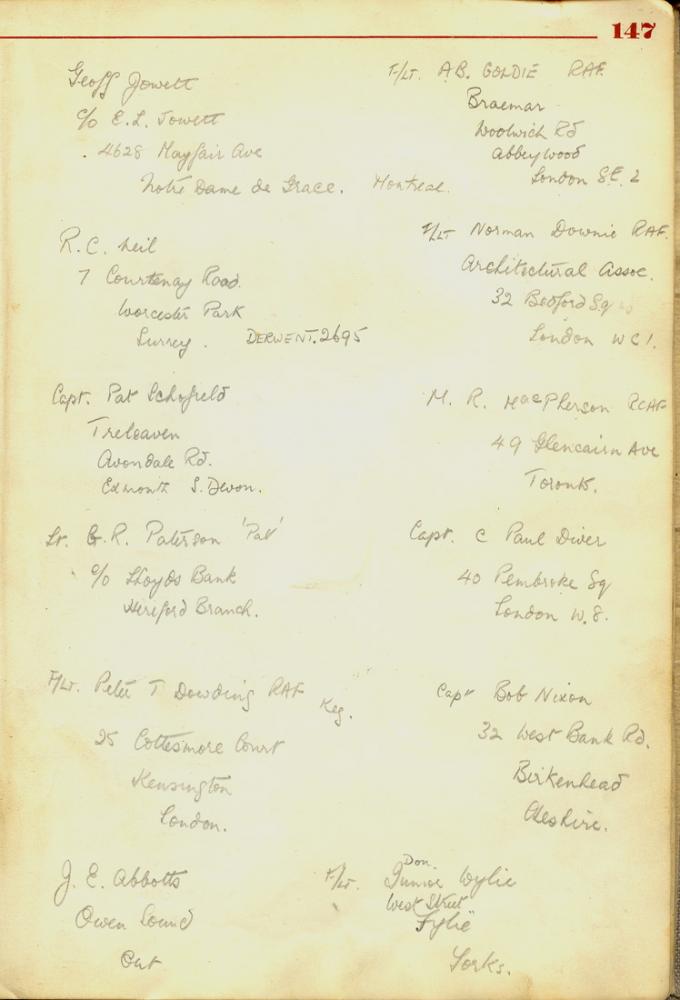 147
Geoff Jowett
c/o E.L. Jowett
4628 Mayfair Ave
Notre Dame de Grace. Montreal.
R.C. Neil
7 Courtenay Road.
Worcester Park
Surrey. DERWENT. 2695
Capt. Pat Schofield
Treleaven
Avondale Rd.
S. Devon.
Lt. G.R. Paterson 'Pat'
c/o Lloyds Bank
Hereford Branch.
F/Lt. Peter T Dowding RAF
25 Cottesmore Court
Kensington
London.
J. E. Abbotts
Owen Sound
Ont
F/Lt. A.B. GOLDIE RAF.
Braemar
Woolwich Rd
Abbeywood
London S.E. 2
F/Lt Norman Downie RAF.
Architectural Assoc.
32 Bedford Sq
London WC1.
M. R. MacPherson RCAF
49 Glencairn Ave
Toronto.
Capt. C Paul Diver
40 Pembroke Sq
London W.8.
Capt Bob Nixon
32 West Bank Rd.
Birkenhead
Cheshire.
Don
F/Lt. Junior Wylie
West Street
Yorks.